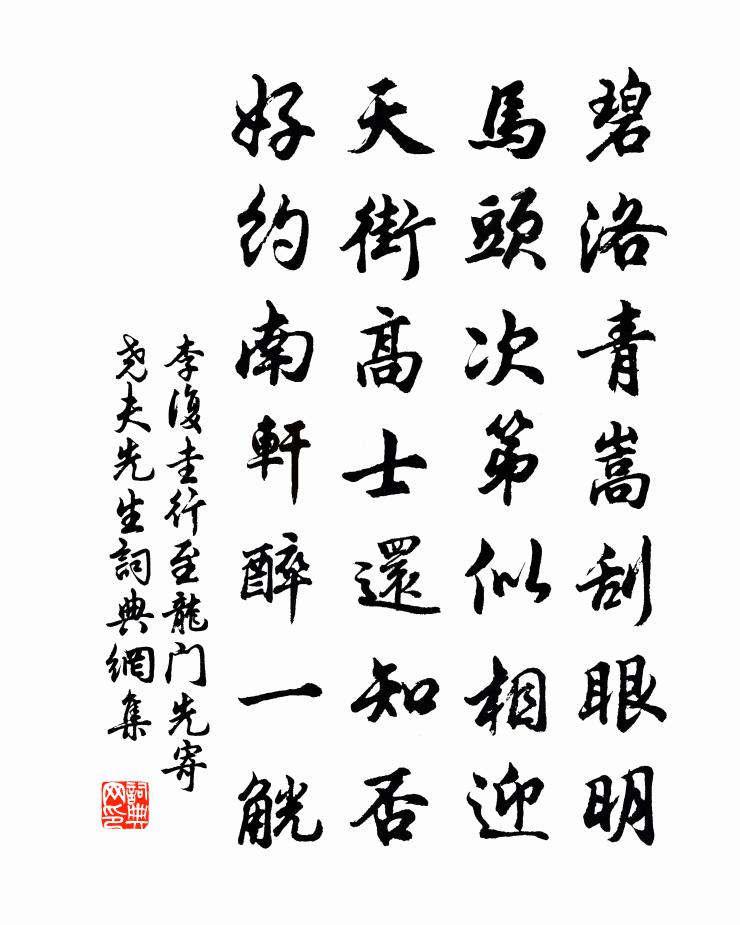 碧洛青嵩刮眼明
馬頭次第似相迎
天街高士還知否
好約南軒醉一觥
李復圭行至龍门先寄
堯夫先生詞典網集
詞典网印